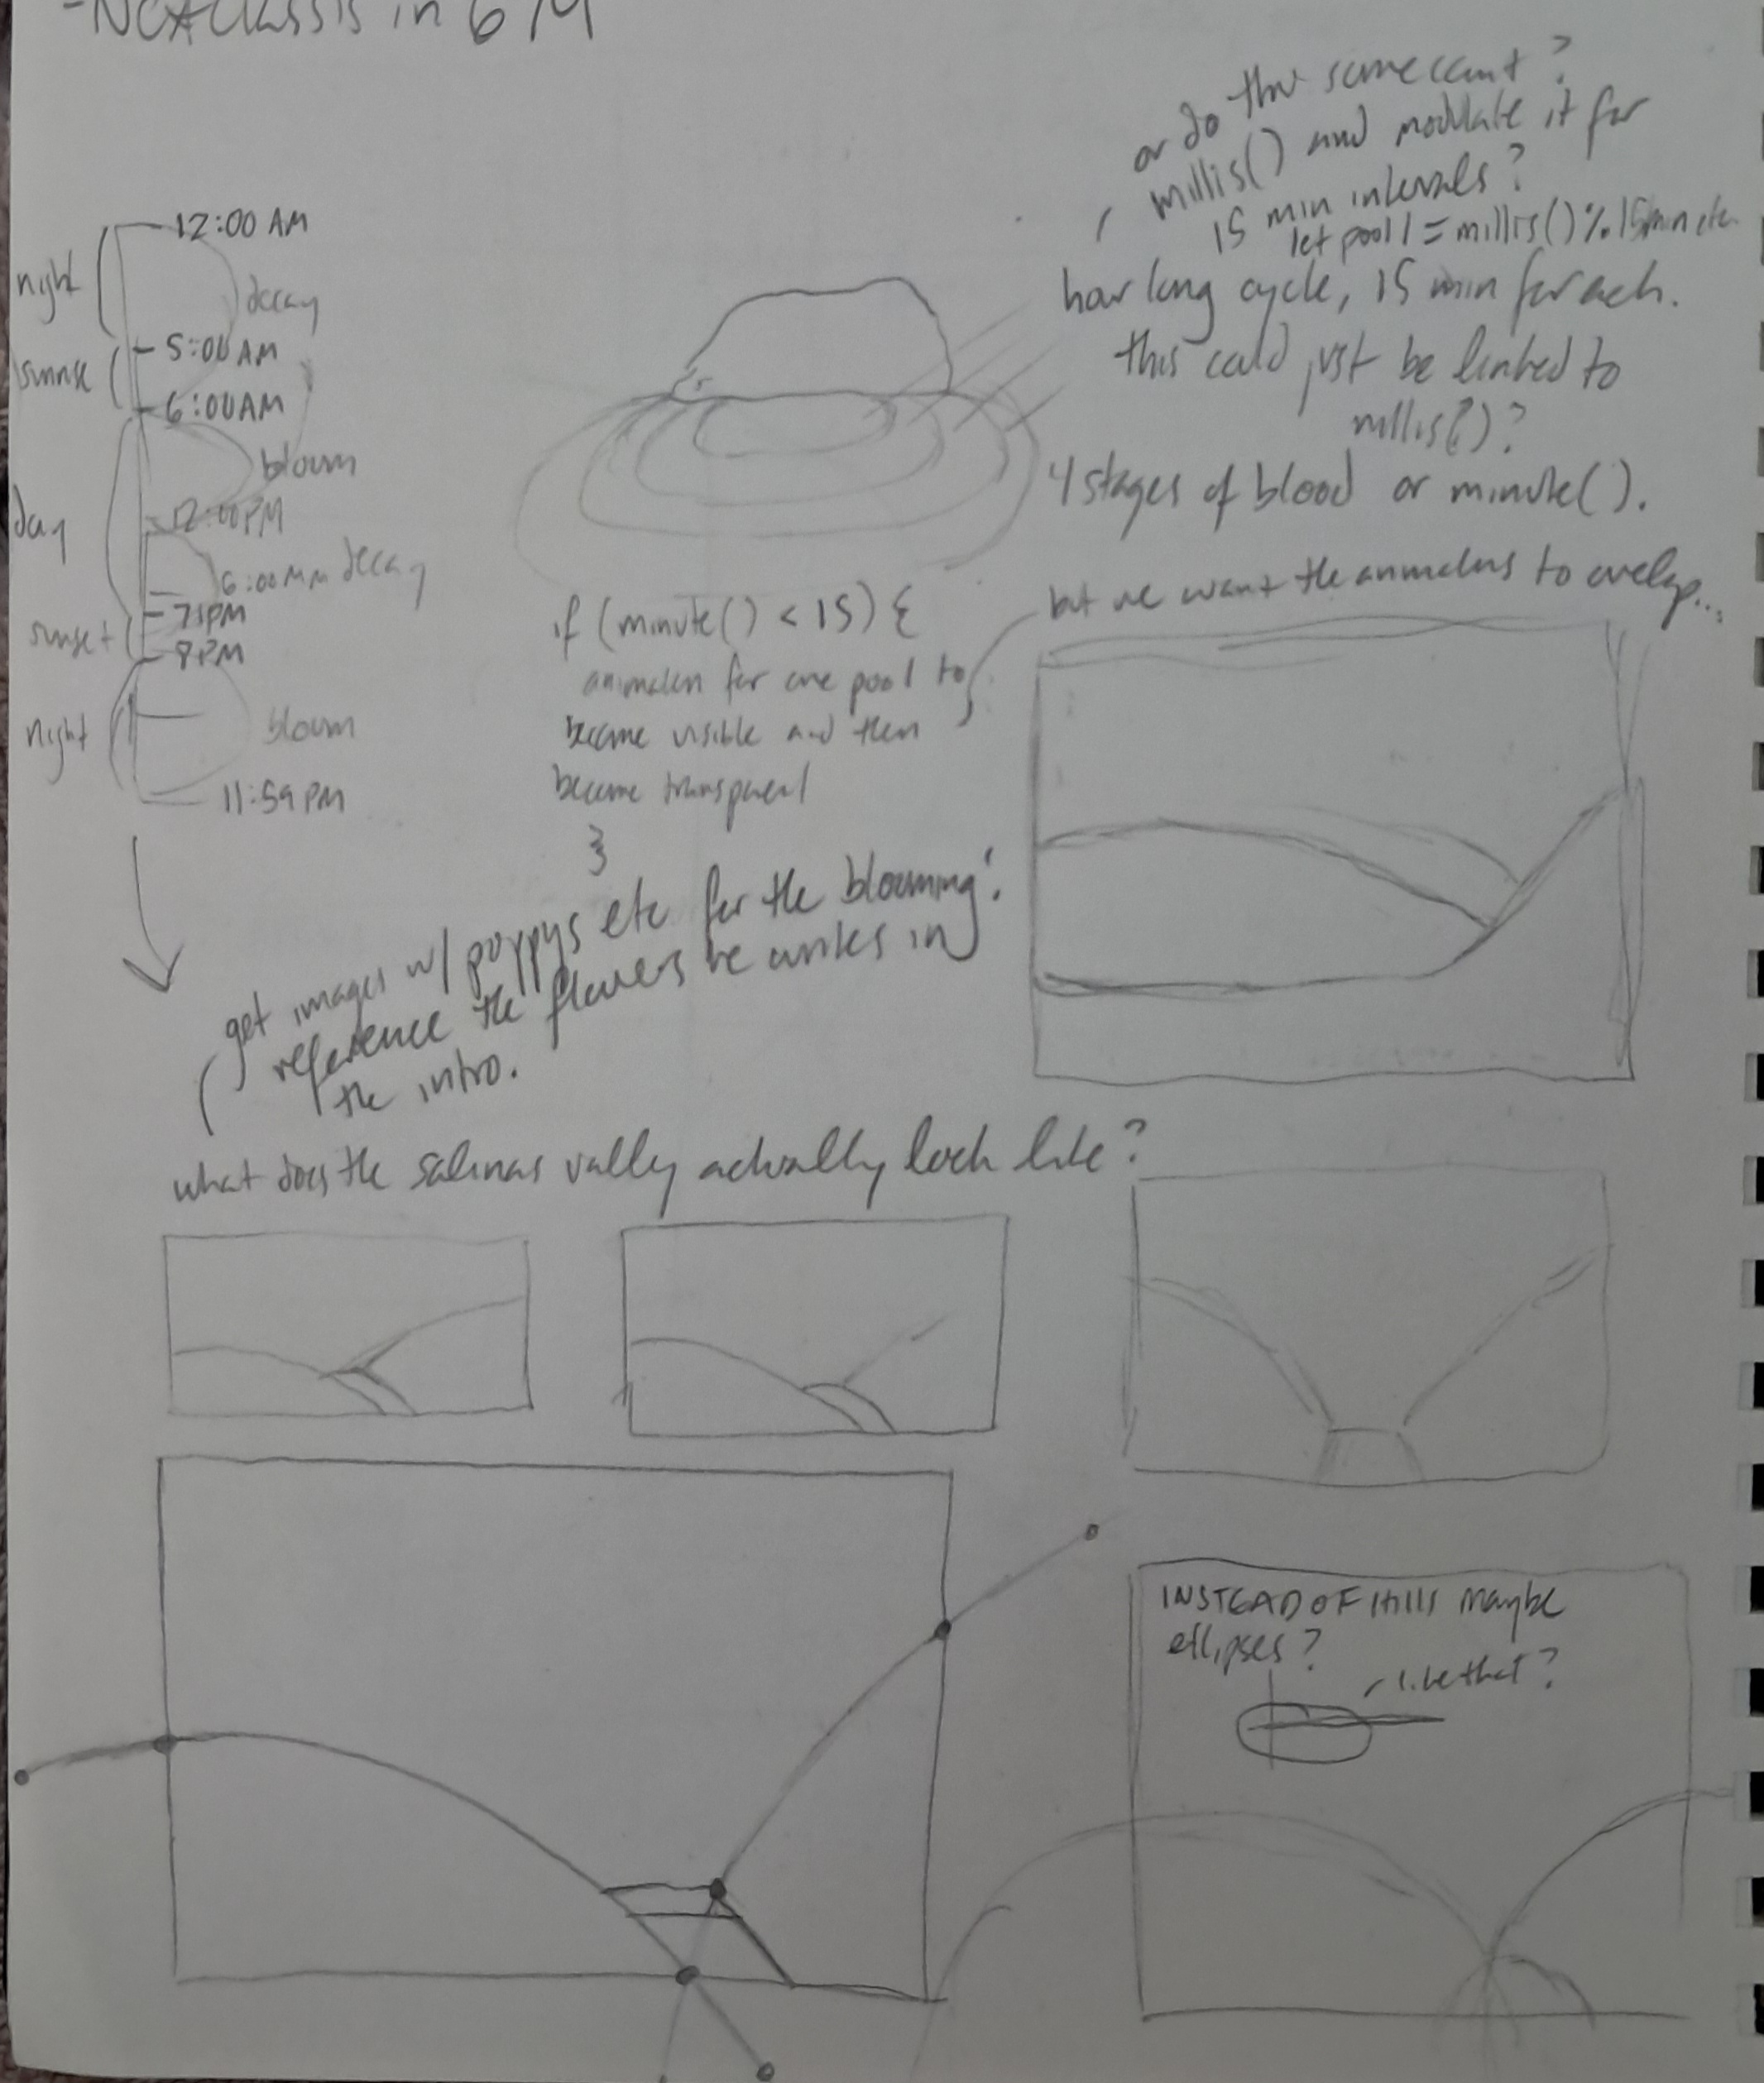 in 6M
12:00 AM
night
decay
5:00 AM
sunrise
6:00AM
bloom
day
12:00PM
6:00 decay
7PM
sunset
8PM
night
bloom
11:59 PM
or do the same count?
millis() and modulate it for
15 min intervals?
let pool1 = millis()%15min etc
hour long cycle, 15 min for each.
this could just be linked to
millis()?
4 stages of blood or minute().
but we want the animations to overlap...
if (minute() < 15) {
animation for one pool to
become visible and then
become transparent
}
get images w/ poppys etc for the blooming:
reference the flowers he writes in
the intro.
what does the salinas vally actually look like?
INSTEAD OF HIlls maybe
ellipses?
like that?